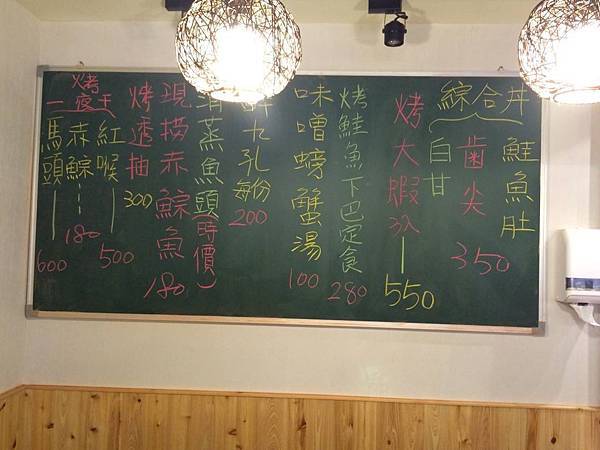 綜合丼
鮭魚肚
齒尖
白甘
350
烤大蝦
550
烤鮭魚下巴定食
280
味噌螃蟹湯
100
九孔 每份
200
蒸魚頭(時價)
現撈赤鯮魚
180
烤透抽
300
烤一夜干
紅喉
500
赤鯮
180
馬頭
600